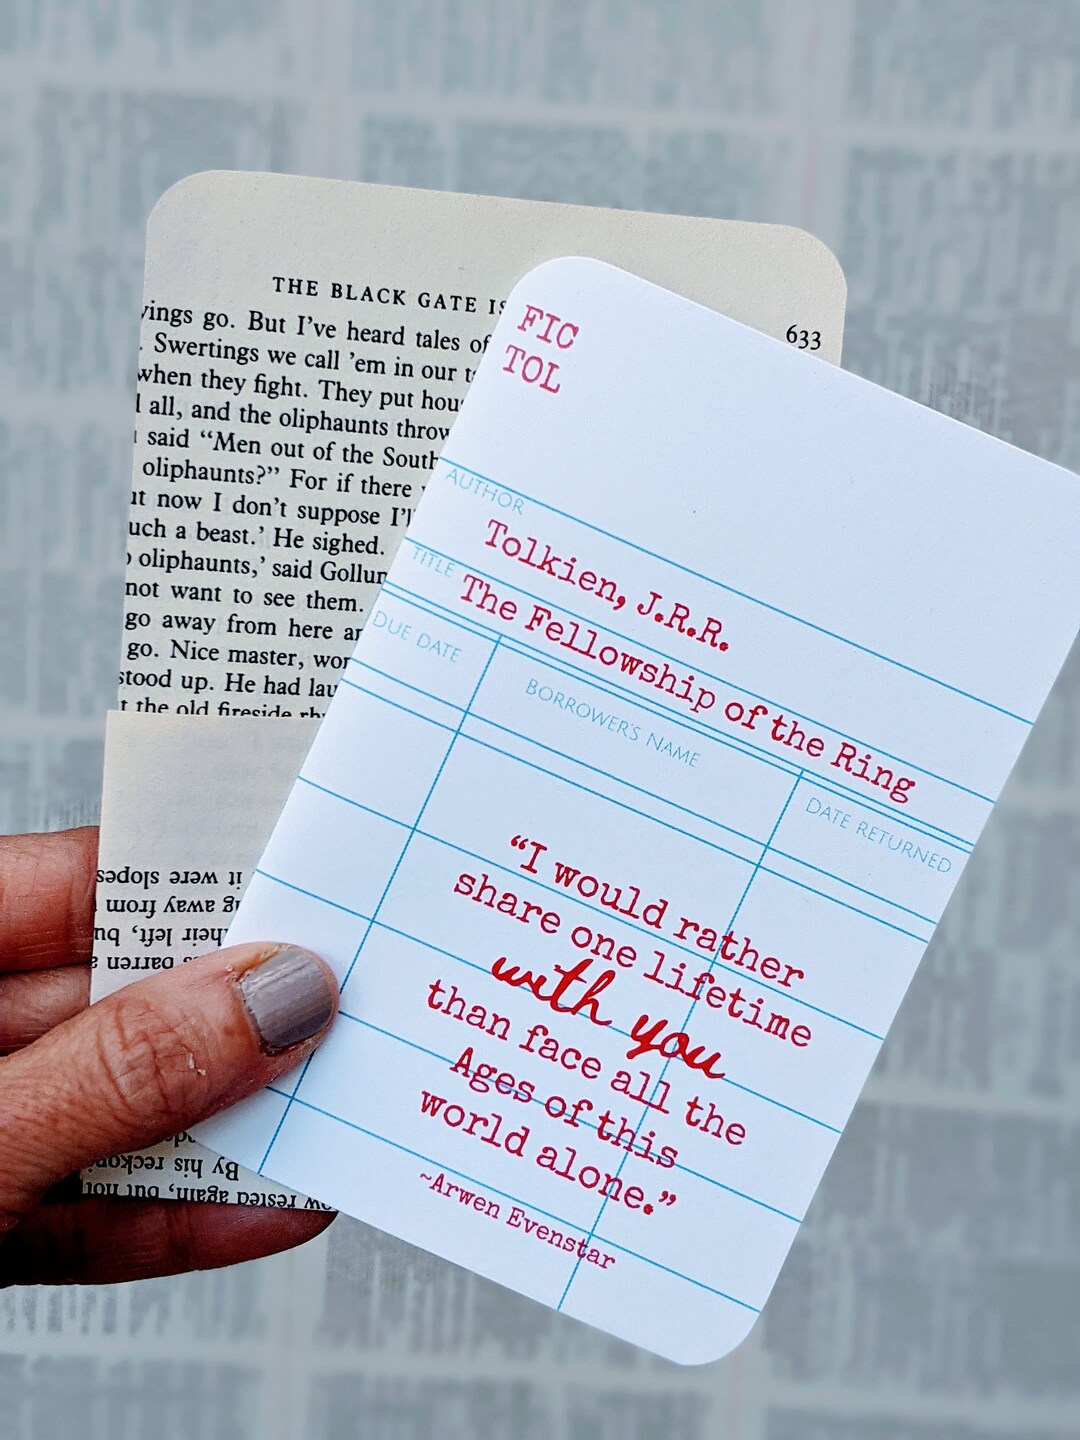 THE BLACK GATE IS
633
go. But I've heard tales of
Swertings we call 'em in our
when they fight. They put
all, and the oliphaunts
said “Men out of the
oliphaunts?” For if there
now I don't suppose
a beast.’ He sighed.
oliphaunts,’ said
not want to see them.
go away from here
go. Nice master,
stood up. He had
the old fireside
it were slopes
away from
their left,
barren
By his
rested again, but not
FIC
TOL
AUTHOR
Tolkien, J.R.R.
TITLE
The Fellowship of the Ring
DUE DATE
BORROWER'S NAME
DATE RETURNED
“I would rather
share one lifetime
with you
than face all the
Ages of this
world alone.”
~Arwen Evenstar